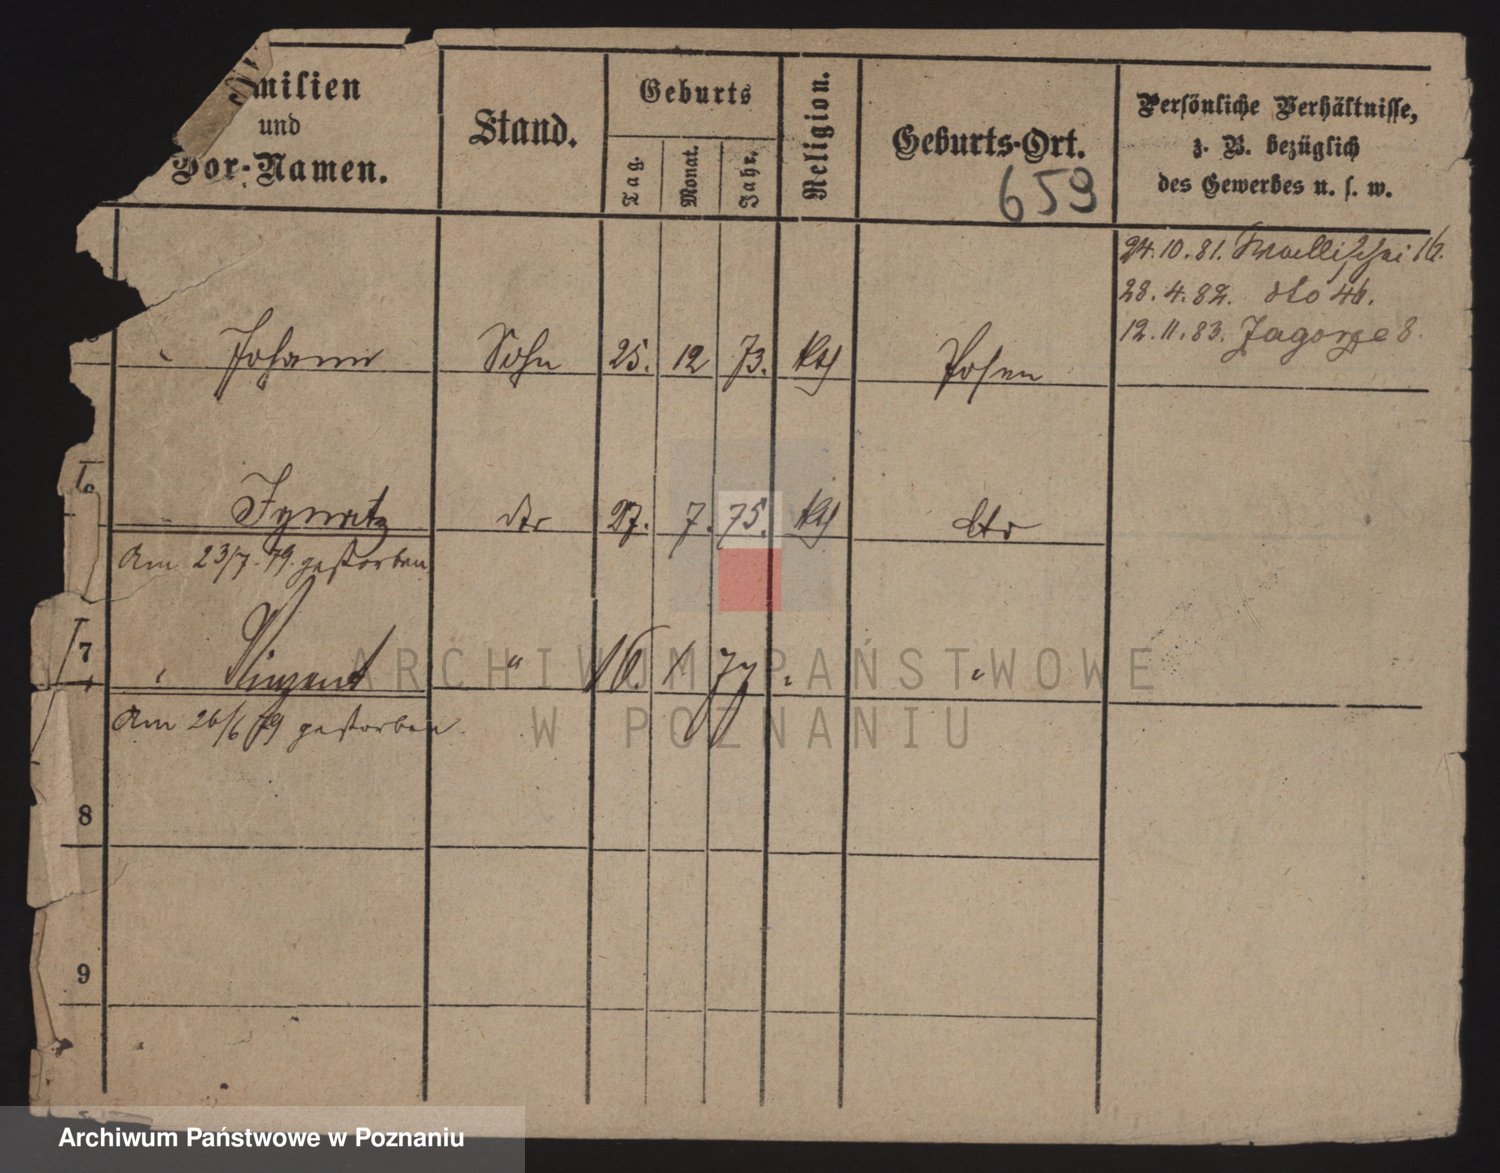 milien
und
Vor-Namen.
Stand.
Geburts
Tag.
Monat.
Jahr.
Religion.
Geburts-Ort.
659
Persönliche Verhältnisse,
z. B. bezüglich
des Gewerbes u. s. w.
24.10.81. Wallischei 16.
28.4.82. dto 46.
12.11.83. Zagorze 8.
Johann Sohn 25. 12 73. kth Posen
6 Ignatz dto 27. 7. 75. kth dto
Am 23/7. 79. gestorben
7 Vinzent " 16. 1 77 " "
Am 26/6 79 gestorben.
8
9
ARCHIWUM PAŃSTWOWE
W POZNANIU
Archiwum Państwowe w Poznaniu